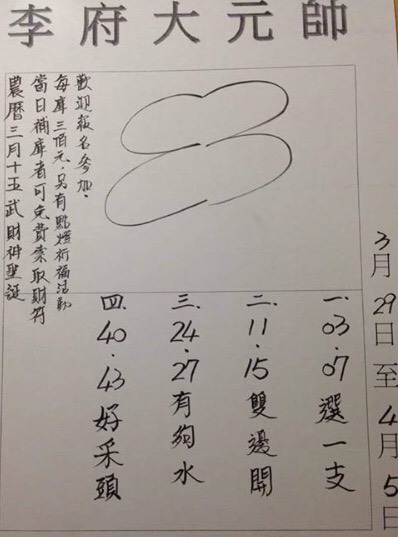 李府大元帥
3月29日至4月5日
一、03.07選一支
二、11.15雙邊開
三、24.27有夠水
四、40.43好采頭
歡迎報名參加.
每庫三佰元.另有點燈祈福活動
當日補庫者可免費索取財符
農曆三月十五武財神聖誕